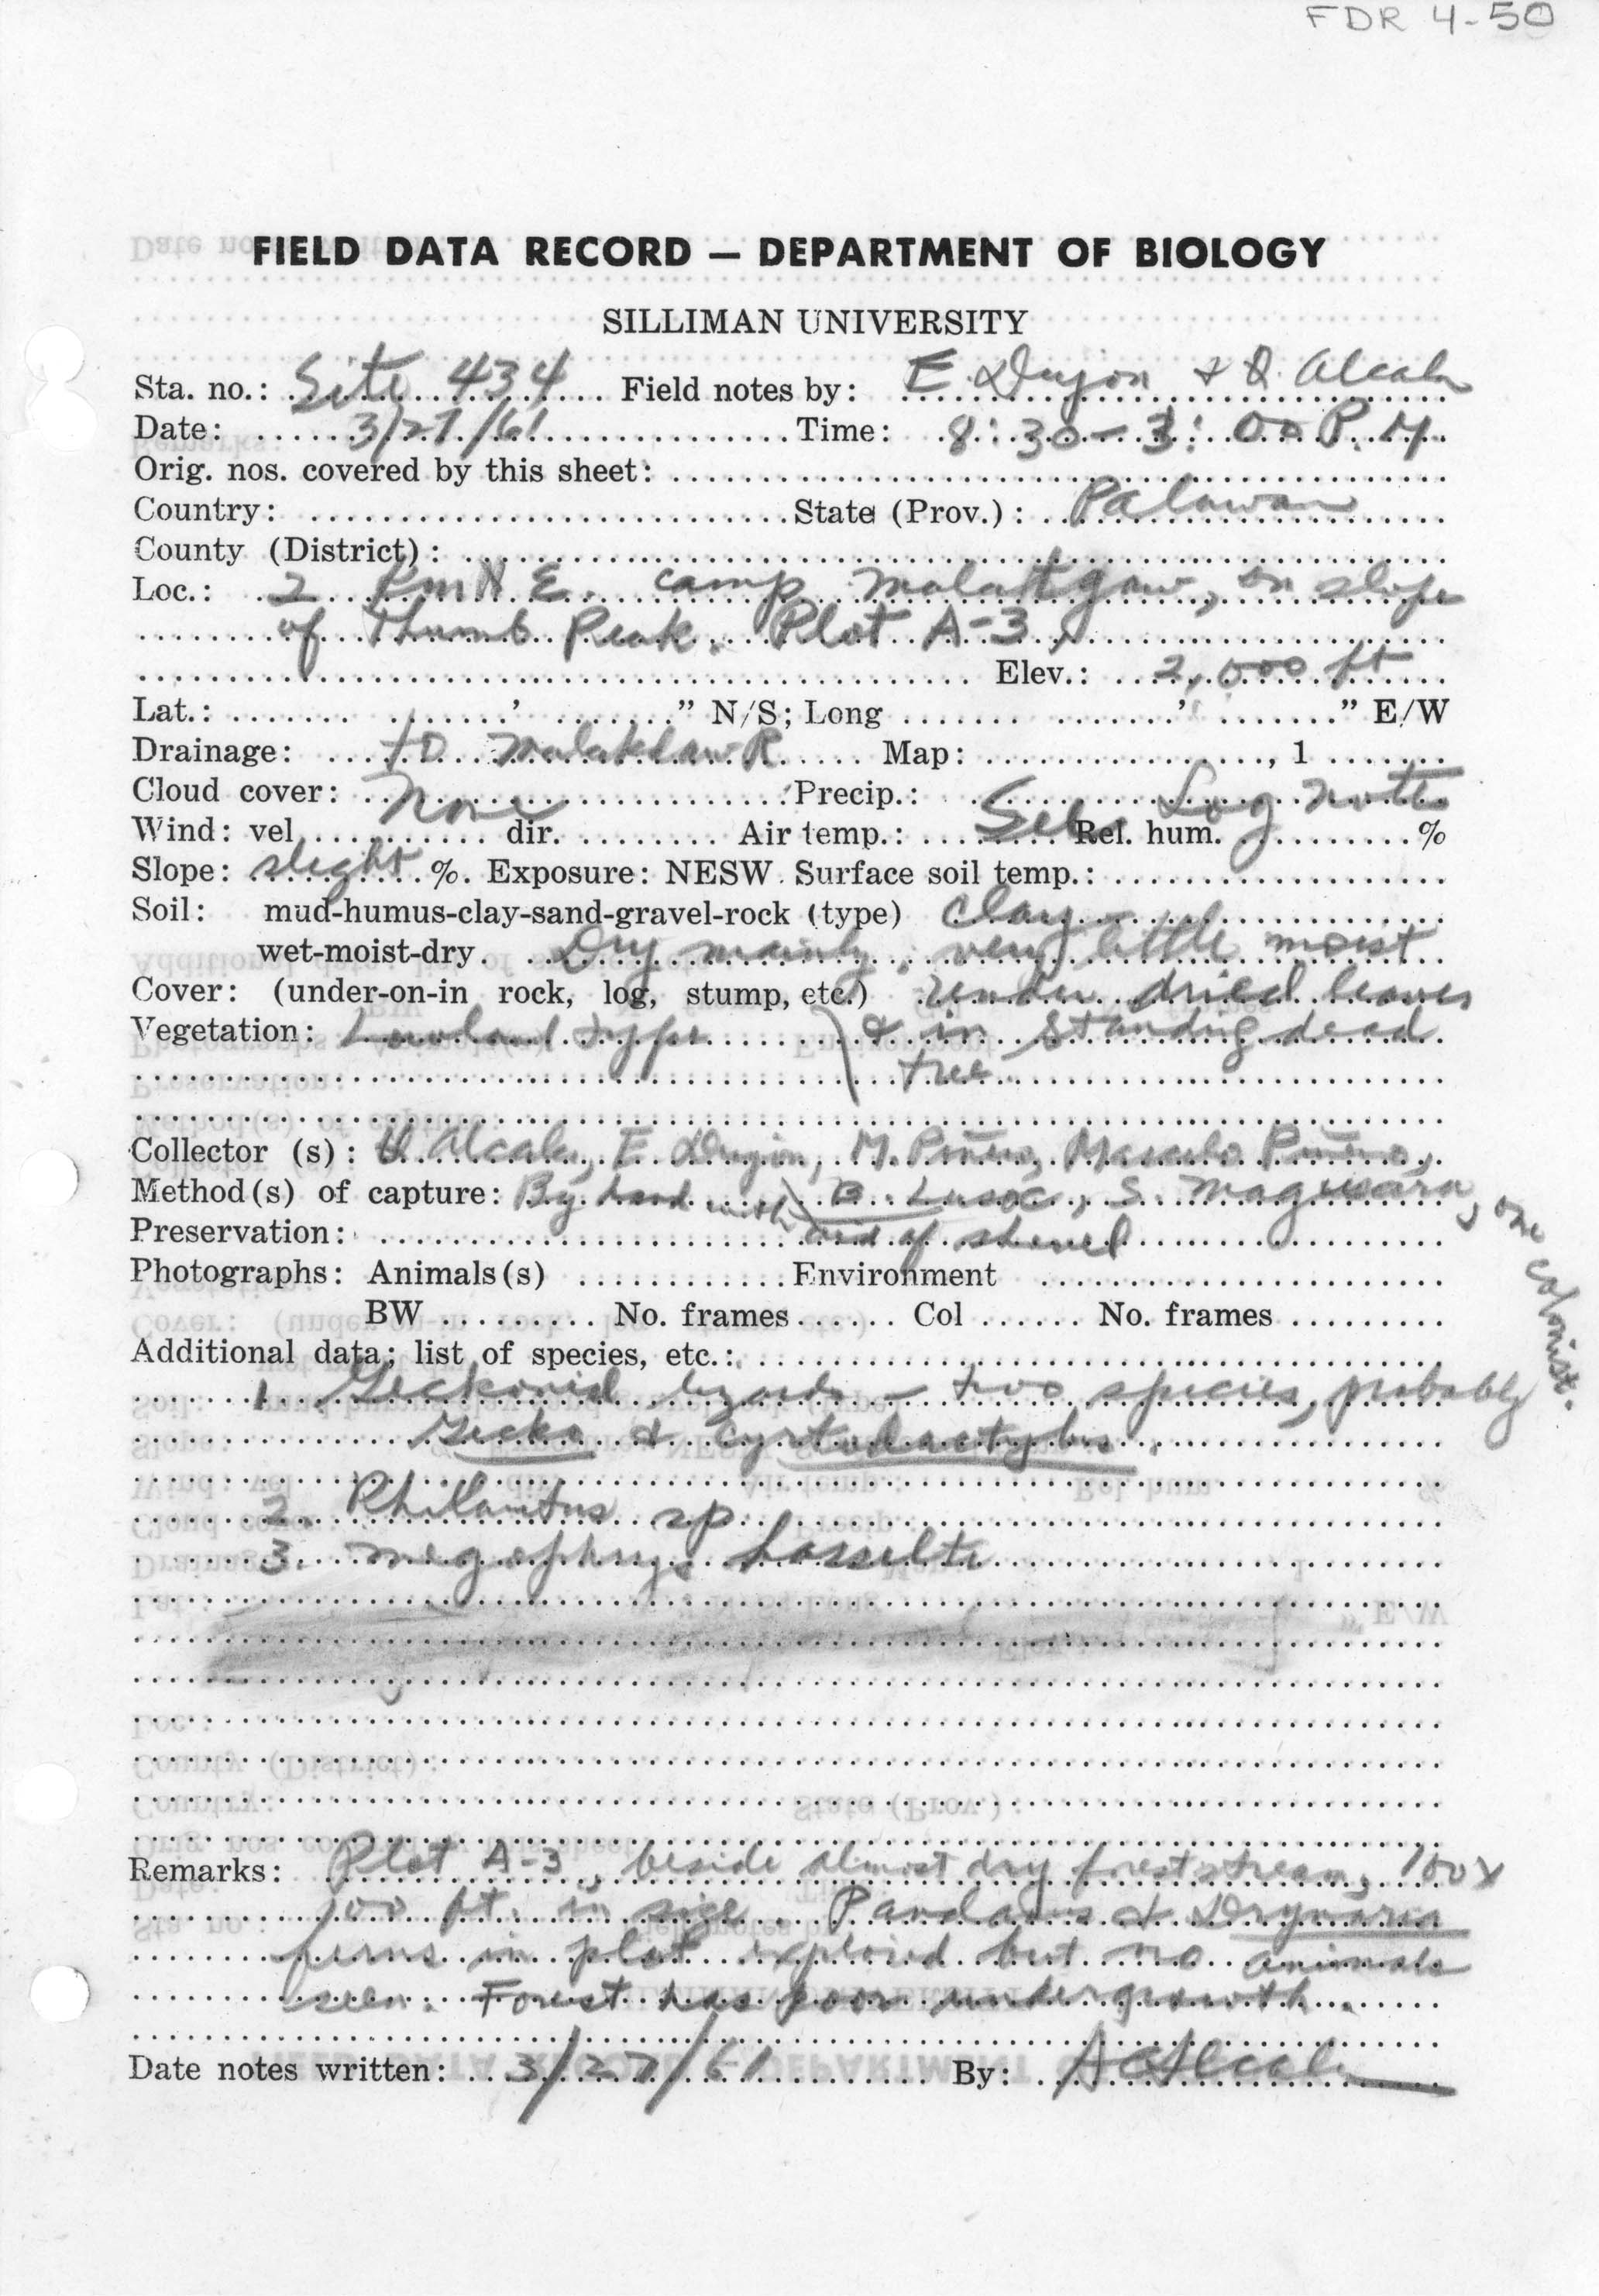 FDR 4-50
FIELD DATA RECORD — DEPARTMENT OF BIOLOGY
SILLIMAN UNIVERSITY
Sta. no.: Site 434 Field notes by: E. Dujon & Q. Alcala
Date: 3/27/61 Time: 8:30-3:00 P.M.
Orig. nos. covered by this sheet:
Country: State (Prov.): Palawan
County (District):
Loc.: 2 km N E. camp Malatgaw, on slope
of Thumb Peak. Plot A-3,
Elev.: 2,000 ft
Lat.: ' " N/S; Long ' " E/W
Drainage: to R. Map: , 1
Cloud cover: None Precip.: See Log notes
Wind: vel. dir. Air temp.: Rel. hum. %
Slope: slight %. Exposure: NESW. Surface soil temp.:
Soil: mud-humus-clay-sand-gravel-rock (type) Clay
wet-moist-dry. Dry mainly; very little moist
Cover: (under-on-in rock, log, stump, etc.) Under dried leaves
Vegetation: Lowland type & in standing dead
tree
Collector (s): Q Alcala, E. Dujon, M. Piñero, Piñero,
B. Lusoc, S. Magusara, one colonist.
Method(s) of capture: By hand with
aid of shovel
Preservation:
Photographs: Animals(s) Environment
BW No. frames Col No. frames
Additional data; list of species, etc.:
1. Geckonid lizards - two species, probably
Gecko & Cyrtodactylus.
2. Philautus sp.
3. Megophrys hasselti
Remarks: Plot A-3, beside almost dry forest stream, 100 x
100 ft. in size. Pandanus & Drynaria
ferns in plot explored but no animals
seen. Forest has poor undergrowth.
Date notes written: 3/27/61 By: A C Alcala